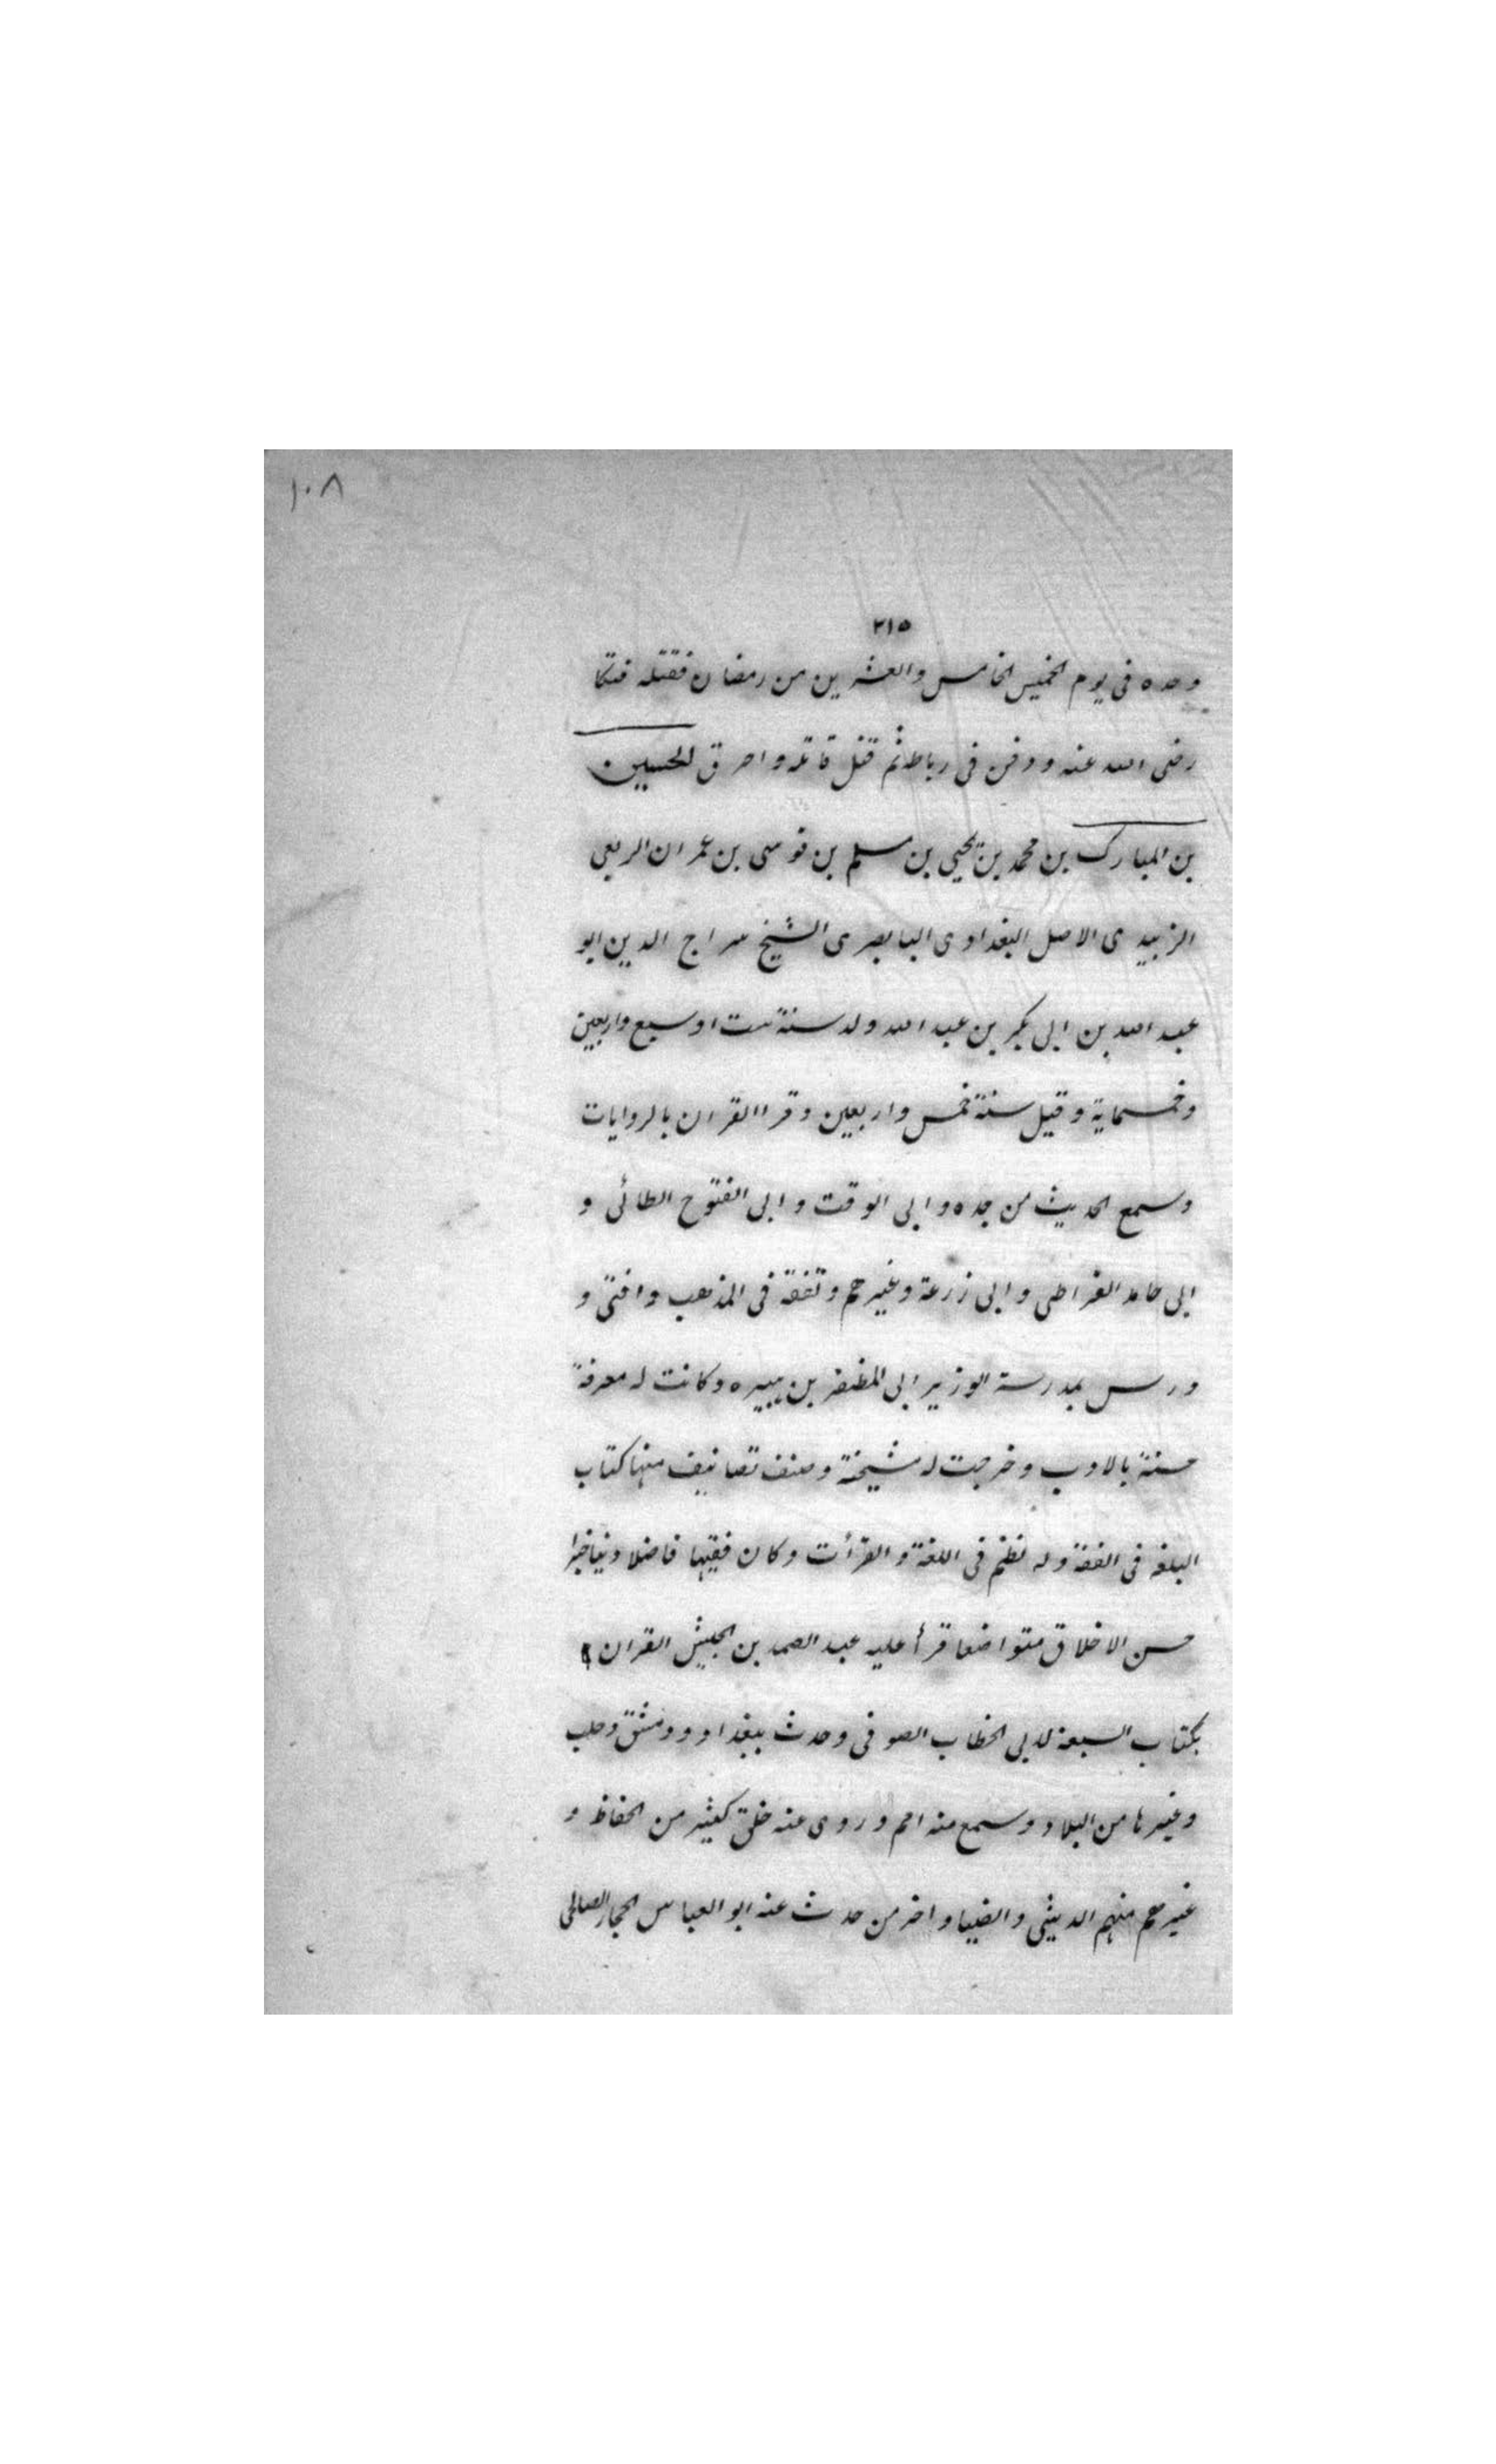 ١٠٨
٢١٥
وحده فى يوم الخميس الخامس والعشرين من رمضان فقتله فتكا
رضى الله عنه ودفن فى رباطه ثم قتل قاتله واحرق الحسين
بن المبارك بن محمد بن يحيى بن مسلم بن موسى بن عمران الربعى
الزبيدى الاصل البغدادى البابصرى الشيخ سراج الدين ابو
عبد الله بن ابى بكر بن عبد الله ولد سنة ست او سبع واربعين
وخمسماية وقيل سنة خمس واربعين وقرا القران بالروايات
وسمع الحديث من جده وابى الوقت وابى الفتوح الطائى و
ابى حامد الغراطى وابى زرعة وغيرهم وتفقه فى المذهب وافتى و
درس بمدرسة الوزير ابى المظفر بن هبيره وكانت له معرفة
حسنة بالادب وخرجت له مشيخة وصنف تصانيف منها كتاب
البلغه فى الفقه وله نظم فى اللغة والقرأت وكان فقيها فاضلا دينا خيرا
حسن الاخلاق متواضعا قرأ عليه عبد الصمد بن الجيش القران
بكتاب السبعة لابى الخطاب الصوفى وحدث ببغداد ودمشق وحلب
وغيرها من البلاد وسمع منه امم وروى عنه خلق كثير من الحفاظ و
غيرهم منهم الدبيثى والضيا واخر من حدث عنه ابو العباس الحجار الصالحى